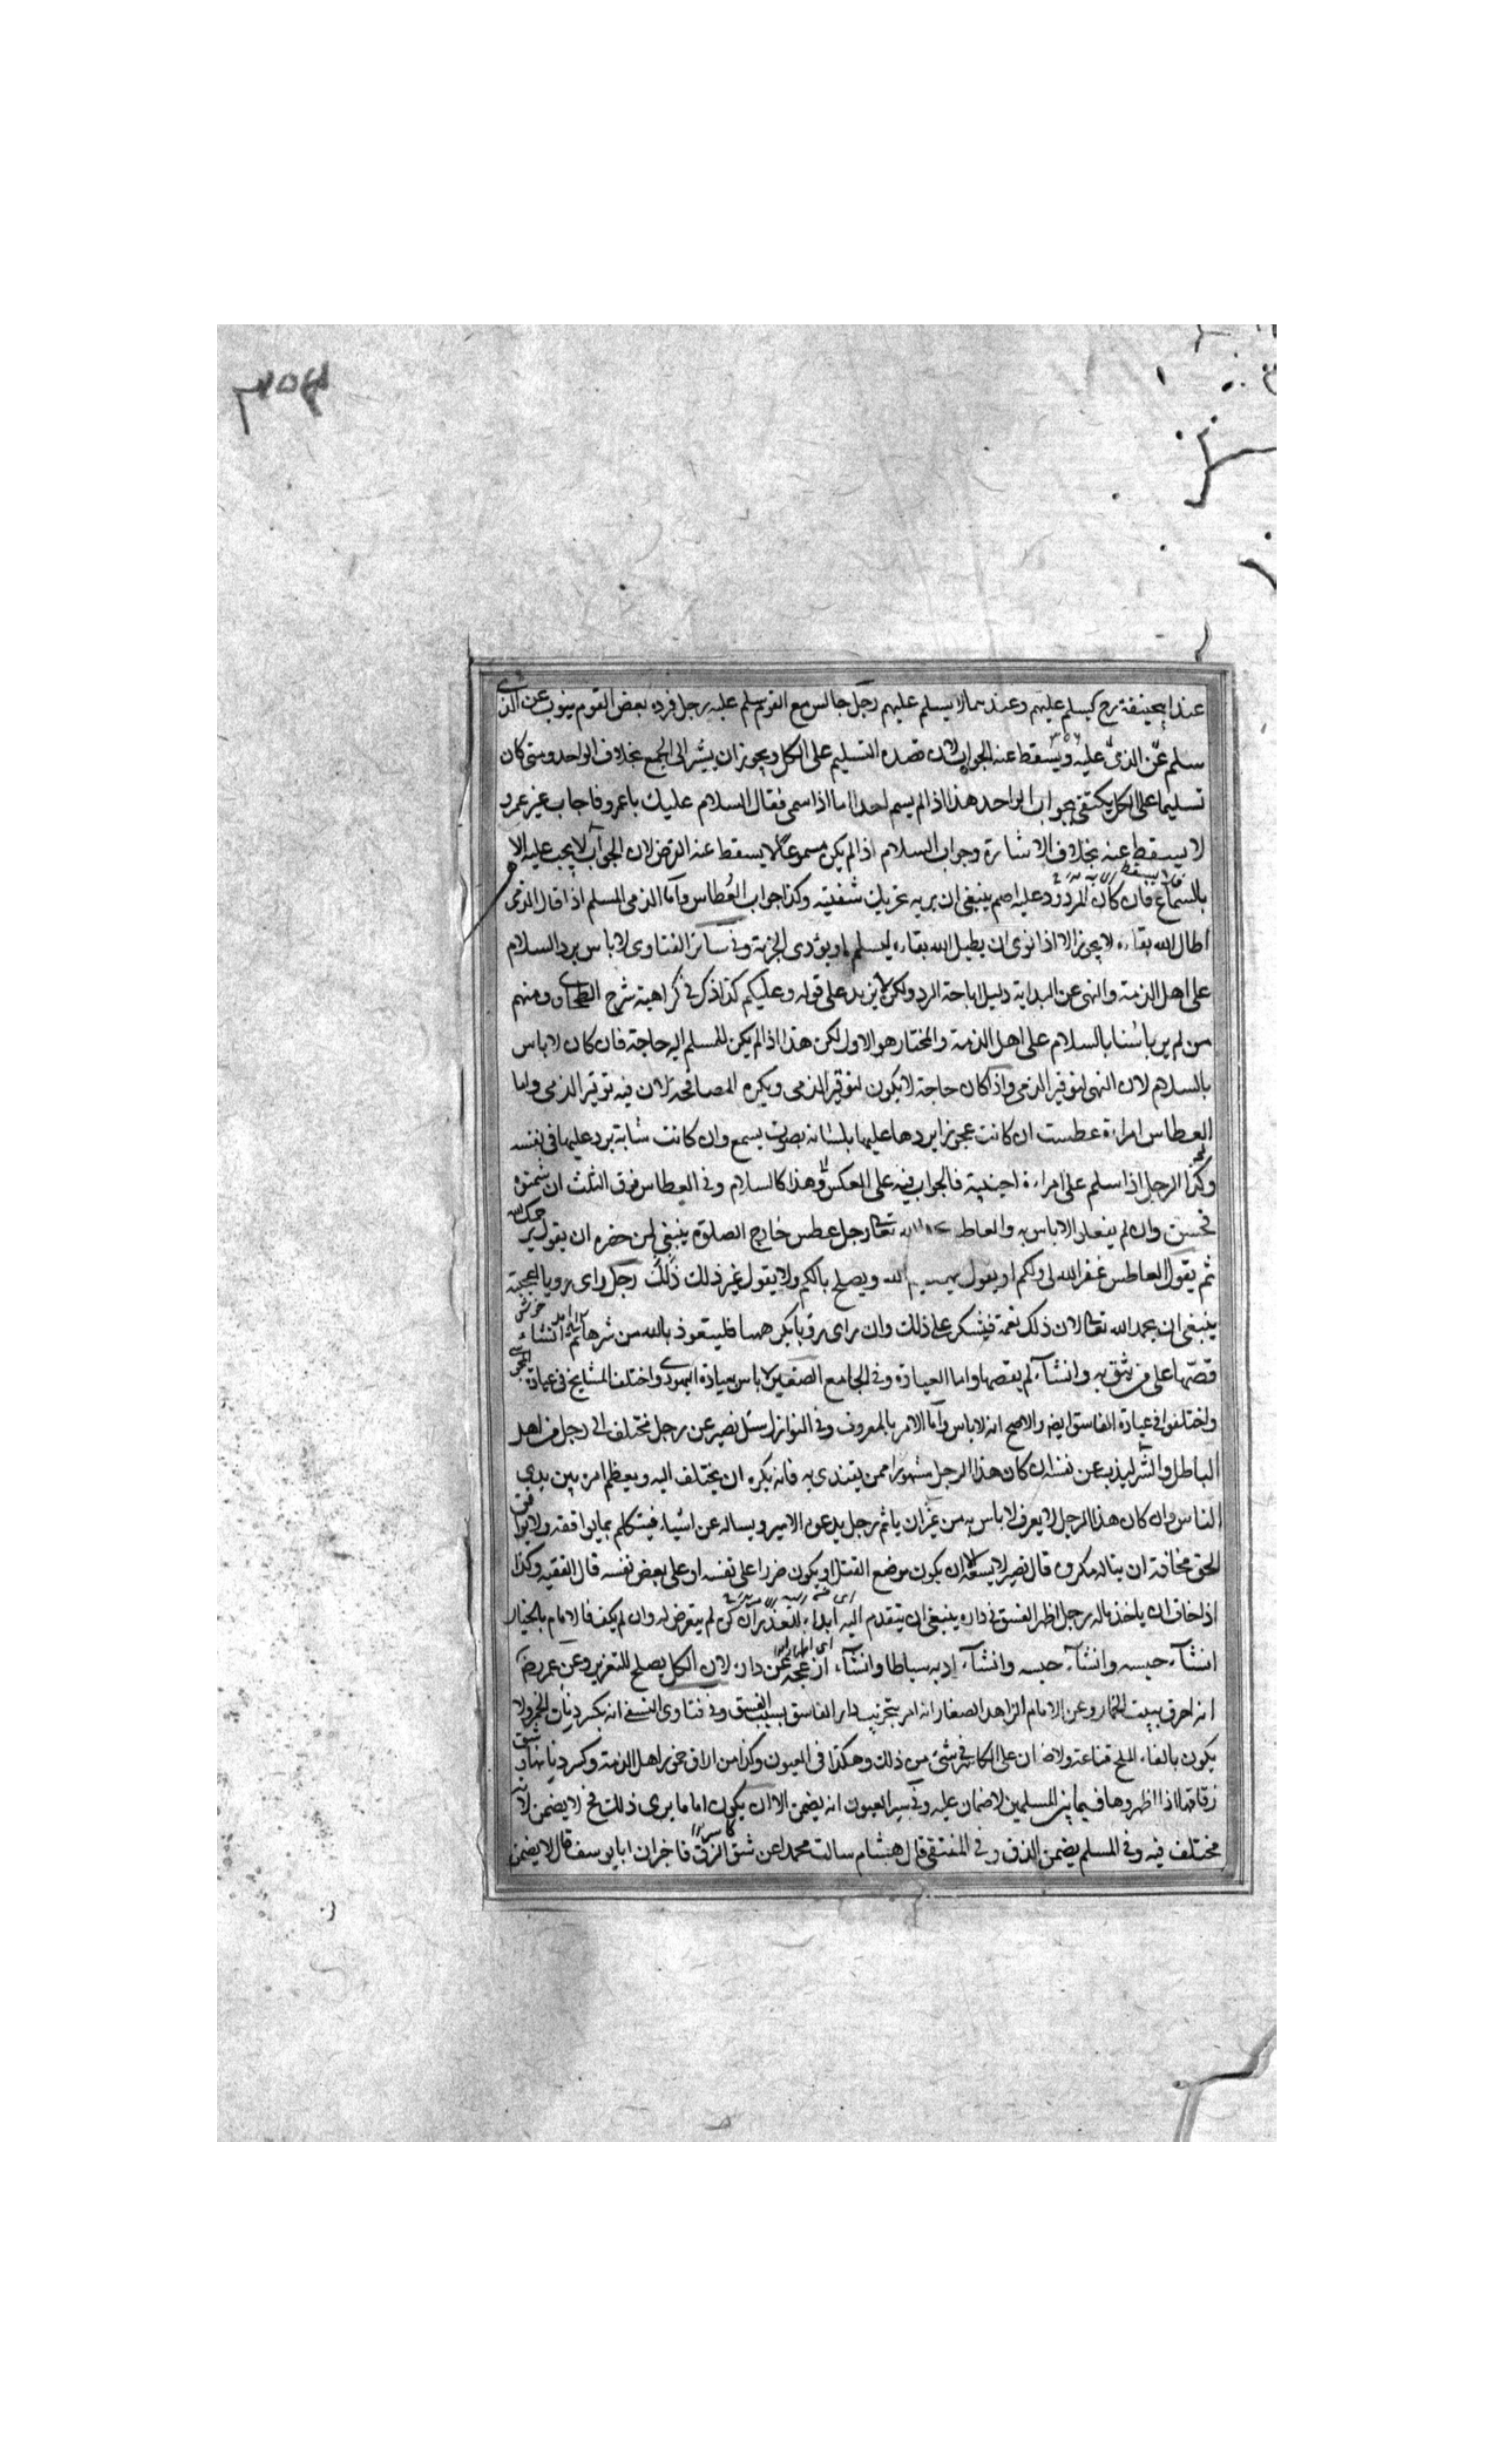 ۳۵۴
عند ابحنيفة رح كيسلم عليهم وعندهما لا يسلم عليهم رجل جالس مع القوم سلم عليه رجل فرده بعض القوم ينوب عن الذى
سلم عن الذى عليه ويسقط عنه الجواب لان قصده التسليم على الكل ويجوز ان يشير الى الجمع بخلاف الواحد ومتى كان
تسليما على الكل يكتفى بجواب الواحد هذا اذا لم يسم احدا اما اذا سمى فقال السلام عليك يا عمرو فاجاب غير عمرو
لا يسقط عنه بخلاف الاشارة وجواب السلام اذا لم يكن مسموعا لا يسقط عنه الفرض لان الجواب لا يجب عليه الا
بالسماع فان كان المردود عليه اصم ينبغى ان يريه تحريك شفتيه وكذا جواب العطاس واما الذمى المسلم اذا قال الذمى
اطال الله بقاءه لا يجوز الا اذا نوى ان يطيل الله بقاءه ليسلم او يؤدى الجزية وفى سائر الفتاوى لا باس برد السلام
على اهل الذمة والنهى عن البداية دليل اباحة الرد ولكن لا يزيد على قوله وعليكم كذا ذكر فى كراهية شرح الطحاوى ومنهم
من لم ير باسا بالسلام على اهل الذمة والمختار هو الاول لكن هذا اذا لم يكن للمسلم اليه حاجة فان كان لا باس
بالسلام لان النهى لتوقير الذمى واذا كان حاجة لا يكون لتوقير الذمى ويكره المصافحة لان فيه توقير الذمى واما
العطاس امراءة عطست ان كانت عجوزا يردها عليها بلسانه بصوت يسمع وان كانت شابة يرد عليها فى نفسه
وكذا الرجل اذا سلم على امراءة اجنبية فالجواب فيه على العكس وهذا كالسلام وفى العطاس فوق الثلث ان شمتوه
فحسن وان لم يفعلوا لا باس به والعاطس تعالى رجل عطس خارج الصلوة ينبغى لمن حضره ان يقول يرحمك الله
ثم يقول العاطس غفر الله لى ولكم او يقول يهديكم الله ويصلح بالكم ولا يقول غير ذلك رجل راى رويا العجبته
ينبغى ان يحمد الله تعالى لان ذلك نعمة فيشكر على ذلك وان راى رويا يكرهها فليتعوذ بالله من شرها ثم انشاء
قصها على من يثق به وانشاء لم يقصها واما العيادة وفى الجامع الصغير لا باس بعيادة اليهودى واختلف المشايخ فى عيادة المجوسى
واختلفوا فى عيادة الفاسق ايض والاصح انه لا باس واما الامر بالمعروف وفى النوازل سئل نصير عن رجل مختلف الى رجل من اهل
الباطل والشر ليذب عن نفسه ان كان هذا الرجل مشهورا ممن يقتدى به فانه يكره ان يختلف اليه ويعظم امره بين يدى
الناس وان كان هذا الرجل لا يعرف لا باس به من غير ان ياثم رجل يدعوه الامير ويساله عن اشياء فيتكلم بما يوافقه ولا يوافق
الحق مخافة ان يناله مكروه قال نصير لا يسعه الا ان يكون موضع القتل او يكون ضررا على نفسه او على بعض نفسه قال الفقيه وكذا
اذا خاف ان ياخذ ماله رجل اظهر الفسق فى داره ينبغى ان يتقدم اليه ابلاء للعذر ان كف لم يتعرض له وان لم يكف فالامام بالخيار
انشاء حبسه وانشاء حبسه وانشاء ادبه سياطا وانشاء ازعجه عن داره لان الكل يصلح للتعزير وعن عمر رض
انه احرق ببيت الخمار وعن الامام الزاهد الصفار انه امر بتخريب دار الفاسق بسبب الفسق وفى فتاوى النسفى انه يكسر دنان الخمر ولا
يكون بالقاء الملح قناعة ولا ضمان على الكاسر فى شئ من ذلك وهكذا فى العيون وكذا من اراق خمور اهل الذمة وكسر دنانها وشق
زقاقها اذا اظهروها فيما بين المسلمين لا ضمان عليه وفى سير العيون انه يضمن الا ان يكون اماما يرى ذلك فح لا يضمن لانه
مختلف فيه وفى المسلم يضمن الذق وفى المنتقى قال هشام سالت محمدا عن شق الزق فاخبر ان ابا يوسف قال لا يضمن